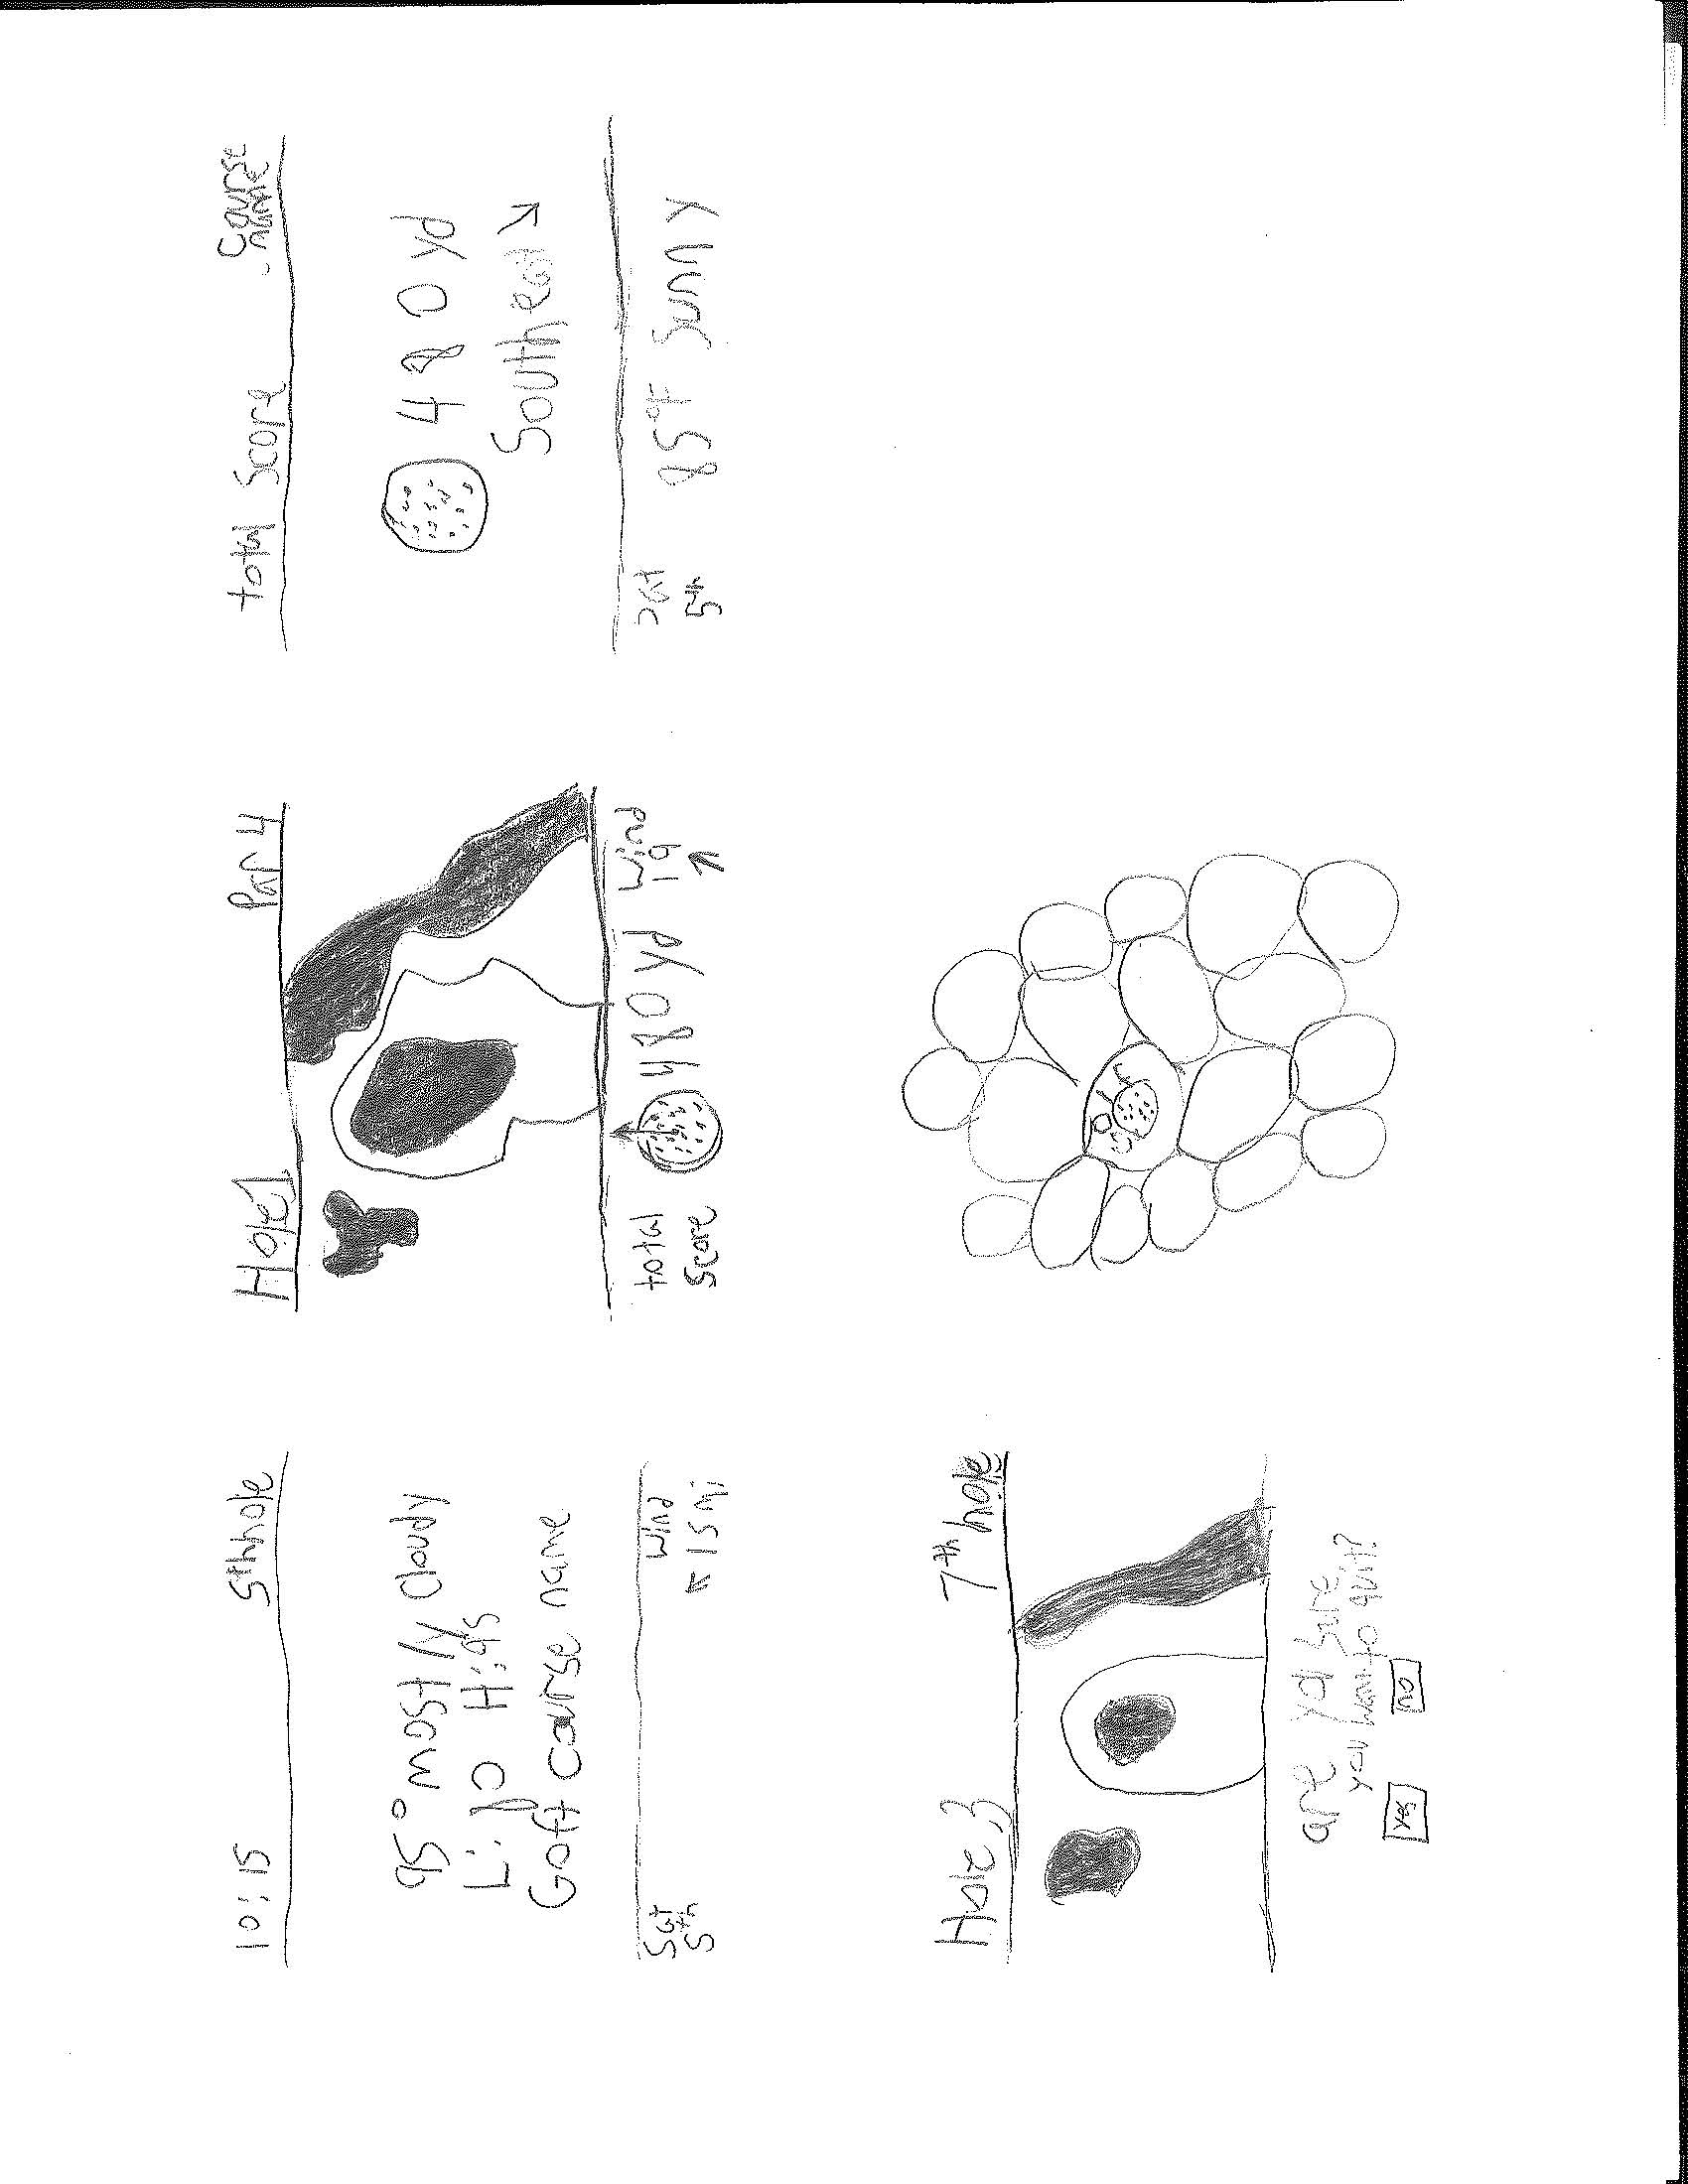 10:15 5th hole
95° mostly cloudy
L: H:95
Golf course name
Sat
5th
Wind
↖ 15 mi
Hole 1 Par 4
total
Score
480 yd
Wind
19
↗
total Score course
name
480 yd
South east ↘
Sat
5th
85°F Sunny
Hole 3 7th hole
are you sure
you want to quit?
yes no